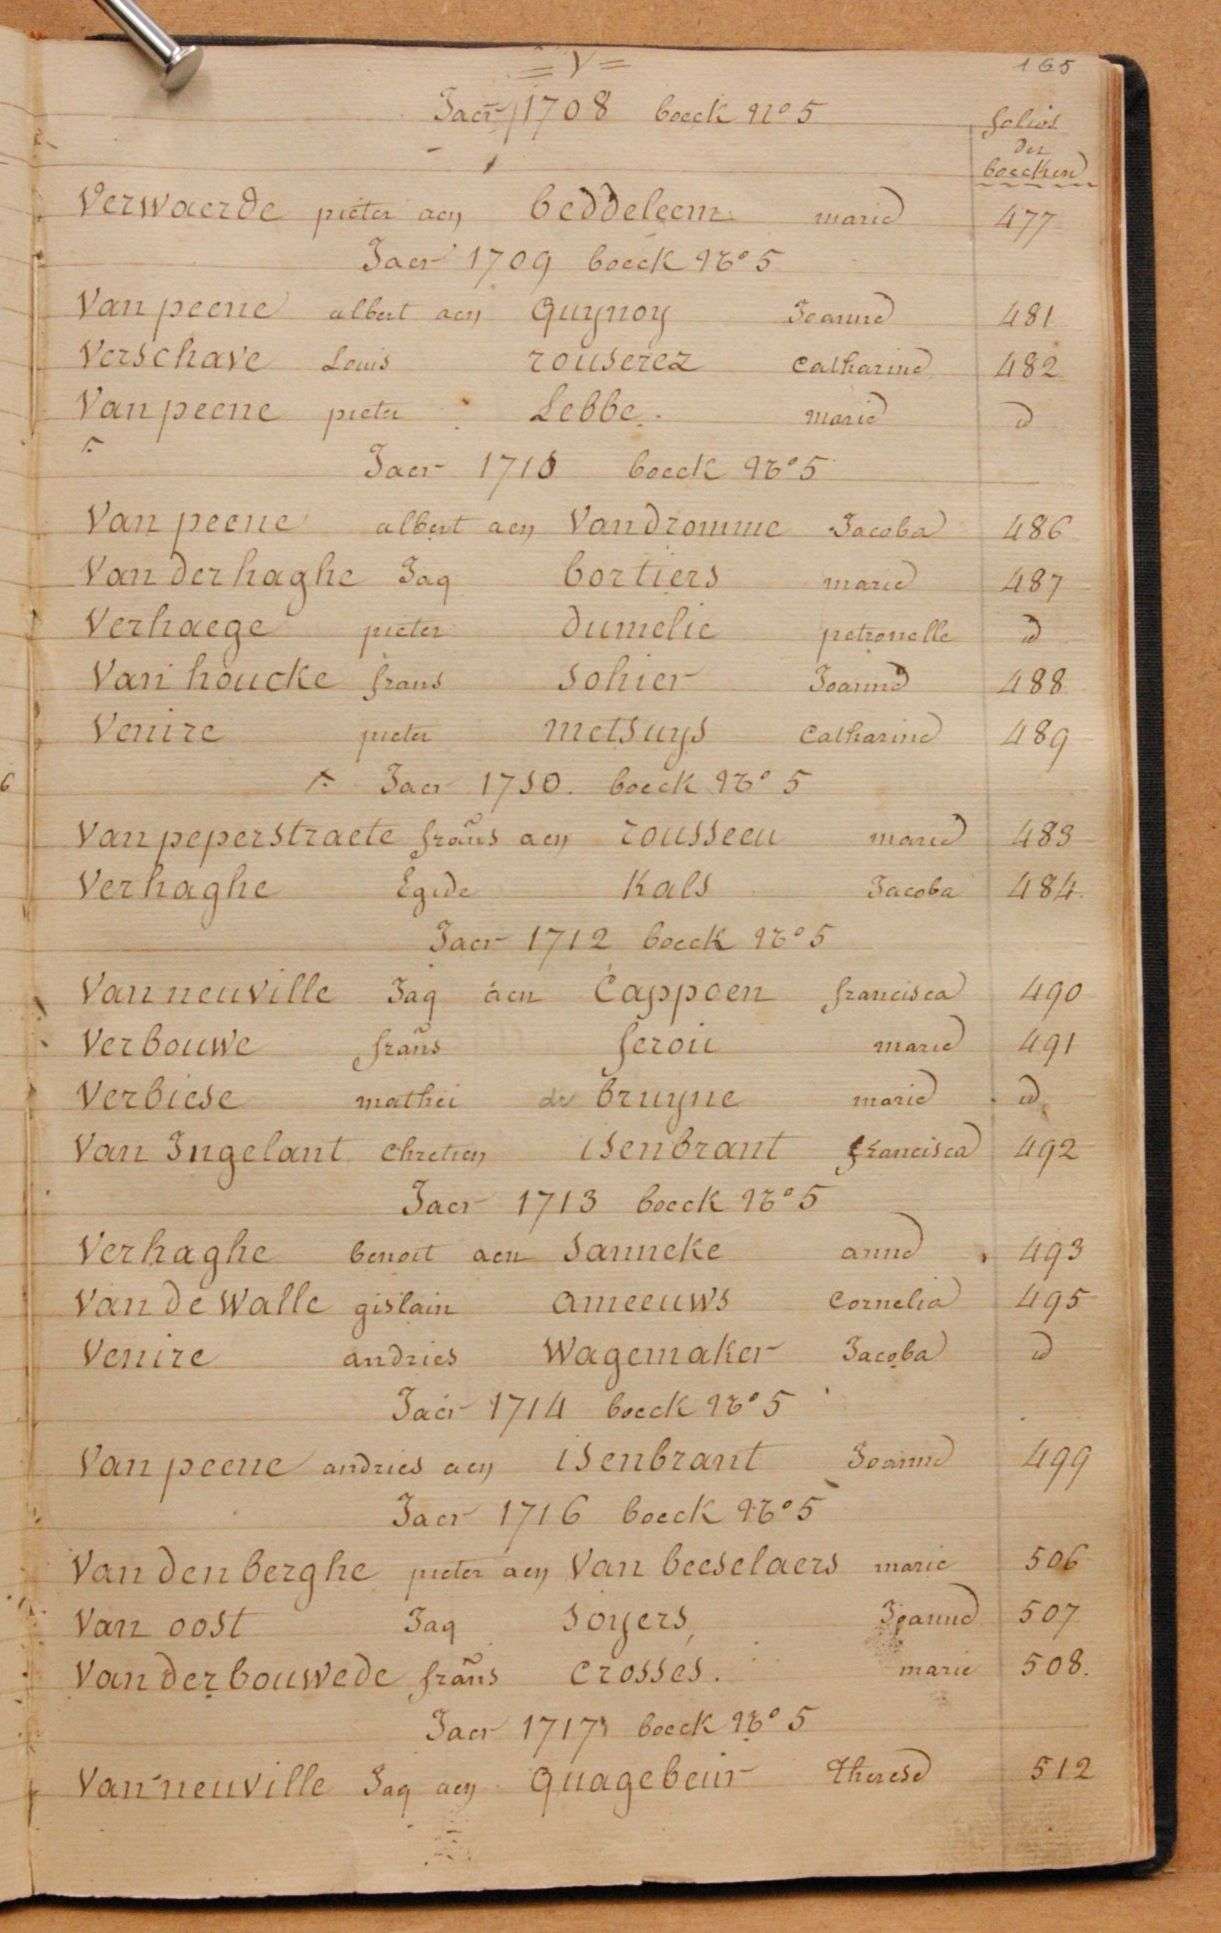 = V = 165
Jaer 1708 boeck No 5
folios
der
boecken
Verwaerde pieter aen beddeleem marie 477
Jaer 1709 boeck No 5
Van peene albert aen Quynoy Joanne 481
Verschave Louis rouserez Catharine 482
Van peene pieter Lebbe. marie d
Jaer 1710 boeck No 5
Van peene albert aen Vandromme Jacoba 486
Van der haghe Jaq bortiers marie 487
Verhaege pieter dumelie petronelle d
Van houcke frans Sohier Joanne 488
Venire pieter metsuys Catharine 489
Jaer 1710. boeck No 5
Van peperstraete frans aen rousseeu marie 483
Verhaghe Egide Kals Jacoba 484.
Jaer 1712 boeck No 5
Van neuville Jaq aen Cappoen francisca 490
Verbouwe frans feroii marie 491
Verbiese mathei de bruyne marie d
Van Ingelant chretien isenbrant francisca 492
Jaer 1713 boeck No 5
Verhaghe benoit aen Sanneke anne 493
Van de Walle gislain ameeuws Cornelia 495
Venire andries Wagemaker Jacoba d
Jaer 1714 boeck No 5
Van peene andries aen isenbrant Joanne 499
Jaer 1716 boeck No 5
Van den berghe pieter aen Van beeselaers marie 506
Van oost Jaq Soyers Joanne 507
Van der bouwede frans Crosses. marie 508.
Jaer 1717 boeck No 5
Van neuville Jaq aen Quagebeur therese 512